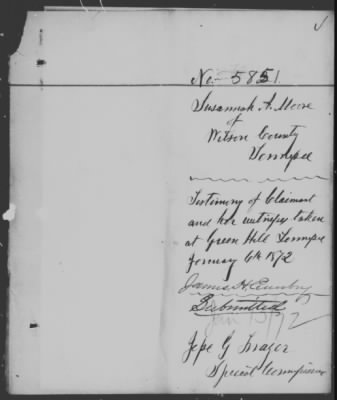 No - 5851
Susannah A. Moore
of
Wilson County
Tennessee
Testimony of Claimant
and her witness taken
at Green Hill Tennessee
January 6th 1872
James H
Submitted
Jan 1872
Jesse G Frazer
Special Commissioner